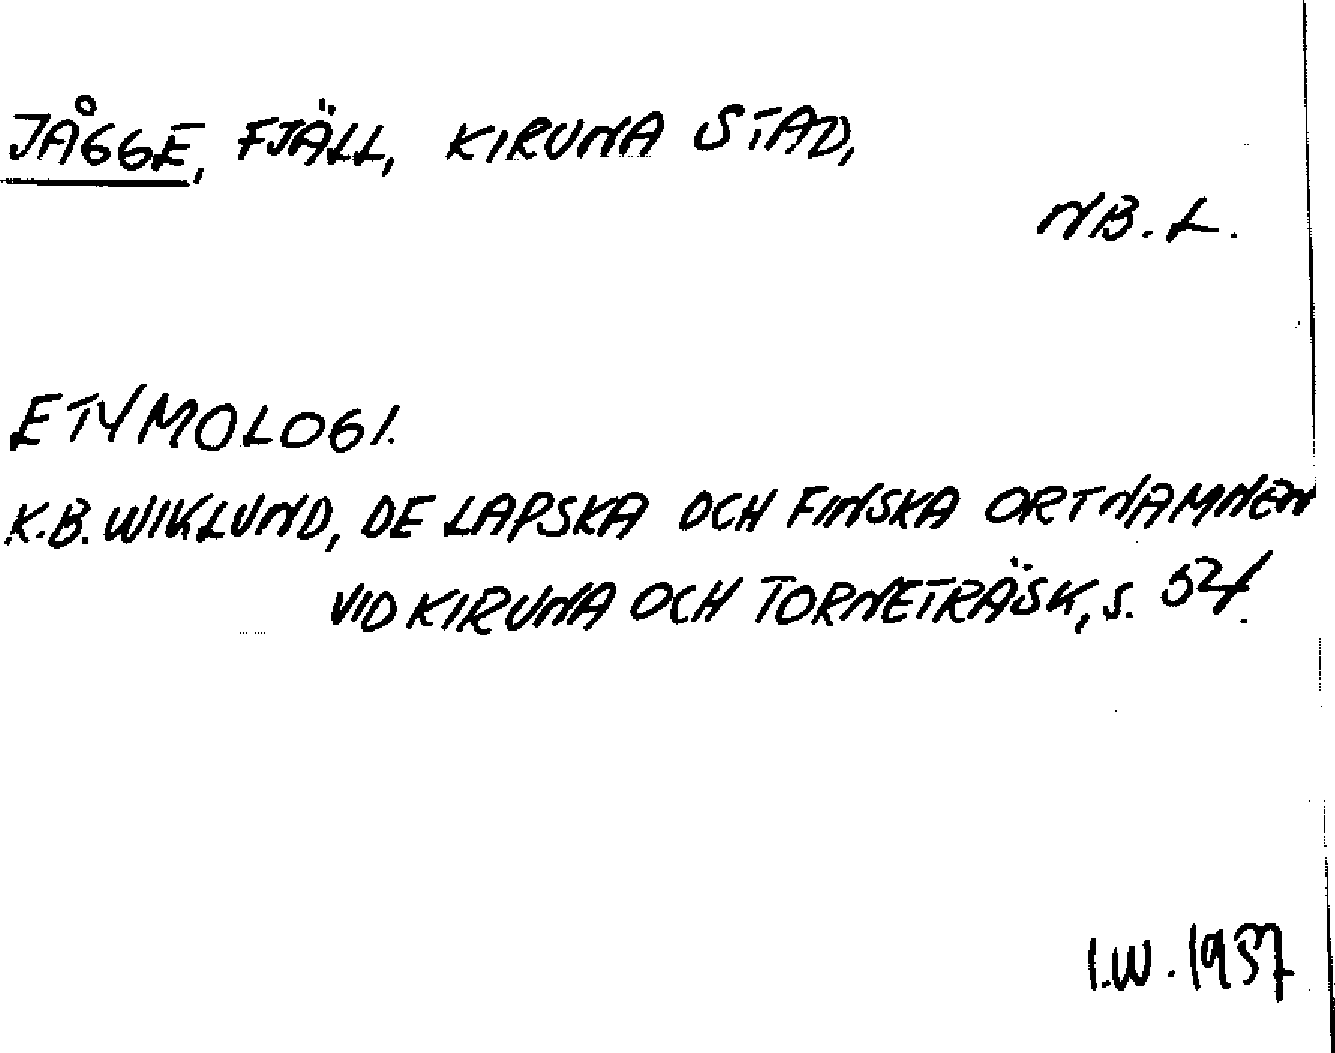 JÅGGE, FJÄLL, KIRUNA STAD,
NB. L.
ETYMOLOGI.
K.B. WIKLUND, DE LAPSKA OCH FINSKA ORTNAMNEN
VID KIRUNA OCH TORNETRÄSK, s.
I.W. 1957